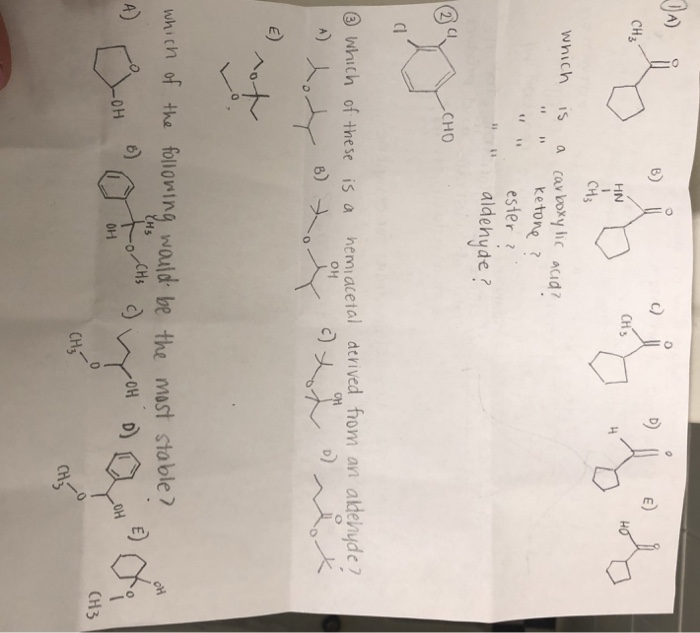 ① A) B) C) D) E)
O O O O O
CH3 HN CH3 H HO
CH3
which is a carboxylic acid?
" " ketone?
" " ester?
" " aldehyde?
② Cl
Cl CHO
③ which of these is a hemiacetal derived from an aldehyde?
A) B) C) D)
OH OH O
O O O O
E)
O
O
which of the following would be the most stable?
A) B) C) D) E)
O CH3 OH
OH OH O CH3 OH OH O
CH3 O CH3 O CH3